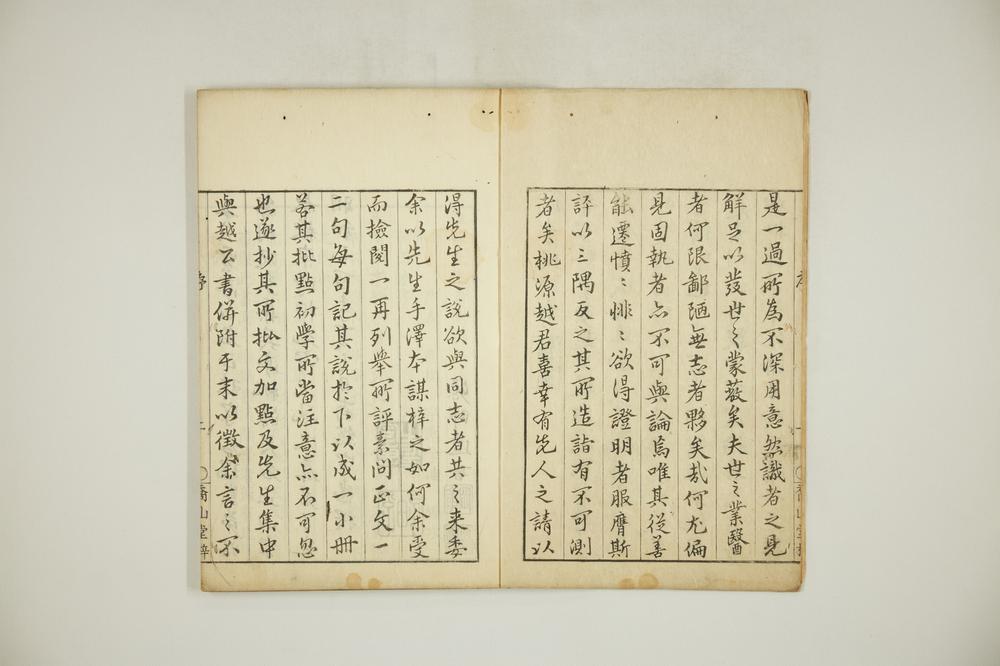 是一過所為不深用意然識者之見
解足以發世之蒙蔽矣夫世之業醫
者何限鄙陋無志者夥矣哉何尤偏
見固執者亦不可與論焉唯其從善
能遷憤〻悱〻欲得證明者服膺斯
評以三隅反之其所造詣有不可測
者矣桃源越君喜幸有先人之請以
得先生之說欲與同志者共之来委
余以先生手澤本謀梓之如何余受
而撿閱一再列舉所評素問正文一
二句每句記其說於下以成一小冊
若其批點初學所當注意亦不可忽
也遂抄其所批文加點及先生集中
與越公書併附于末以徵余言之不
序
一
二
喬山堂梓